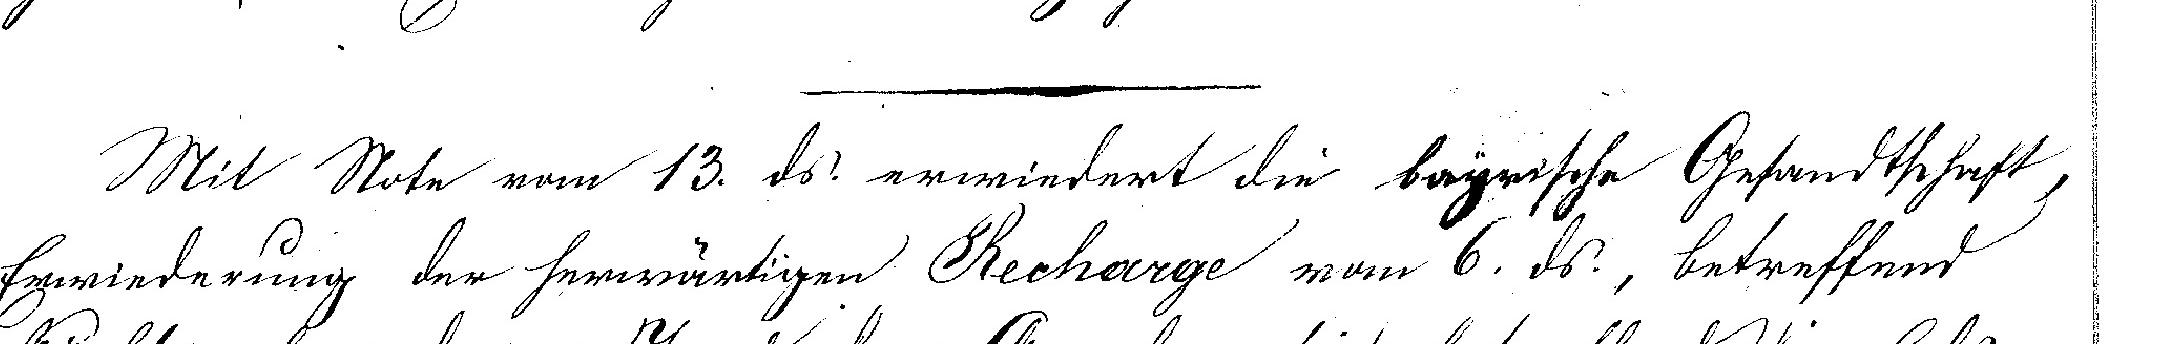 Mit Note vom 13. ds. erwiedert die bayrische Gesandtschaft,
Erwiederung der herwärtigen Recharge vom 6. ds., betreffend